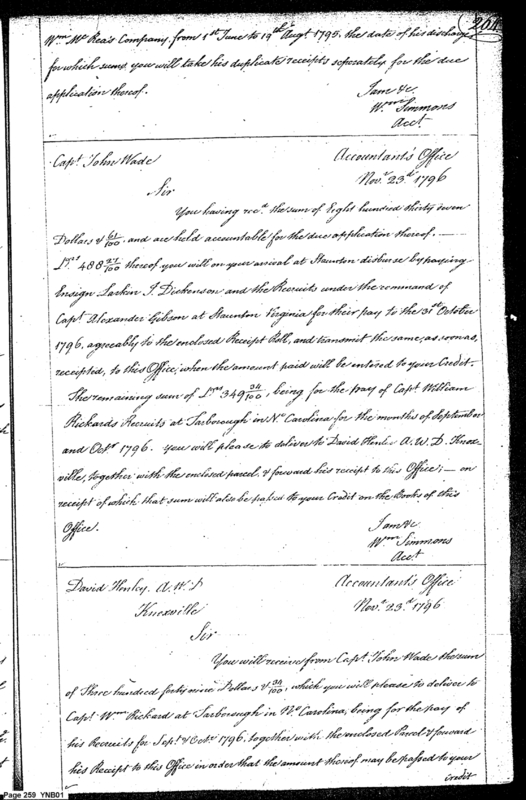 261
Wm Mc Rea's Company, from 1st June to 19th Augt 1795. the date of his discharge
for which sums you will take his duplicate receipts seperately for the due
application thereof.
I am &c
Wm Simmons
Acct
Capt John Wade
Accountant's Office
Novr 23d 1796
Sir
You having recd the sum of Eight hundred thirty seven
Dollars & 61/100 and are held accountable for the due application thereof. —
Drs 488 27/100 thereof you will on your arrival at Staunton disburse by paying
Ensign Larkin J. Dickenson and the Recruits under the command of
Capt Alexander Gibson at Staunton Virginia for their pay to the 31st October
1796, agreeably to the enclosed Receipt Roll, and transmit the same, as soon as,
receipted, to this Office; when the amount paid will be entered to your Credit.
The remaining sum of Drs 349 34/100, being for the pay of Capt William
Rickards Recruits at Tarborough in No Carolina for the months of September
and Octr 1796. you will please to deliver to David Henley A. W. D. Knox-
ville, together with the enclosed parcel & forward his receipt to this Office; — on
receipt of which that sum will also be passed to your Credit on the Books of this
Office.
I am &c
Wm Simmons
Acct
David Henley, A. W. D
Accountant's Office
Knoxville
Novr 23d 1796
Sir
You will receive from Capt John Wade the sum
of Three hundred forty nine Dollars & 34/100, which you will please to deliver to
Capt Wm Rickard at Tarborough in No Carolina, being for the pay of
his Recruits for Sept & Octr 1796. together with the enclosed Parcel & forward
his Receipt to this Office in order that the amount thereof may be passed to your
credit
Page 259 YNB01